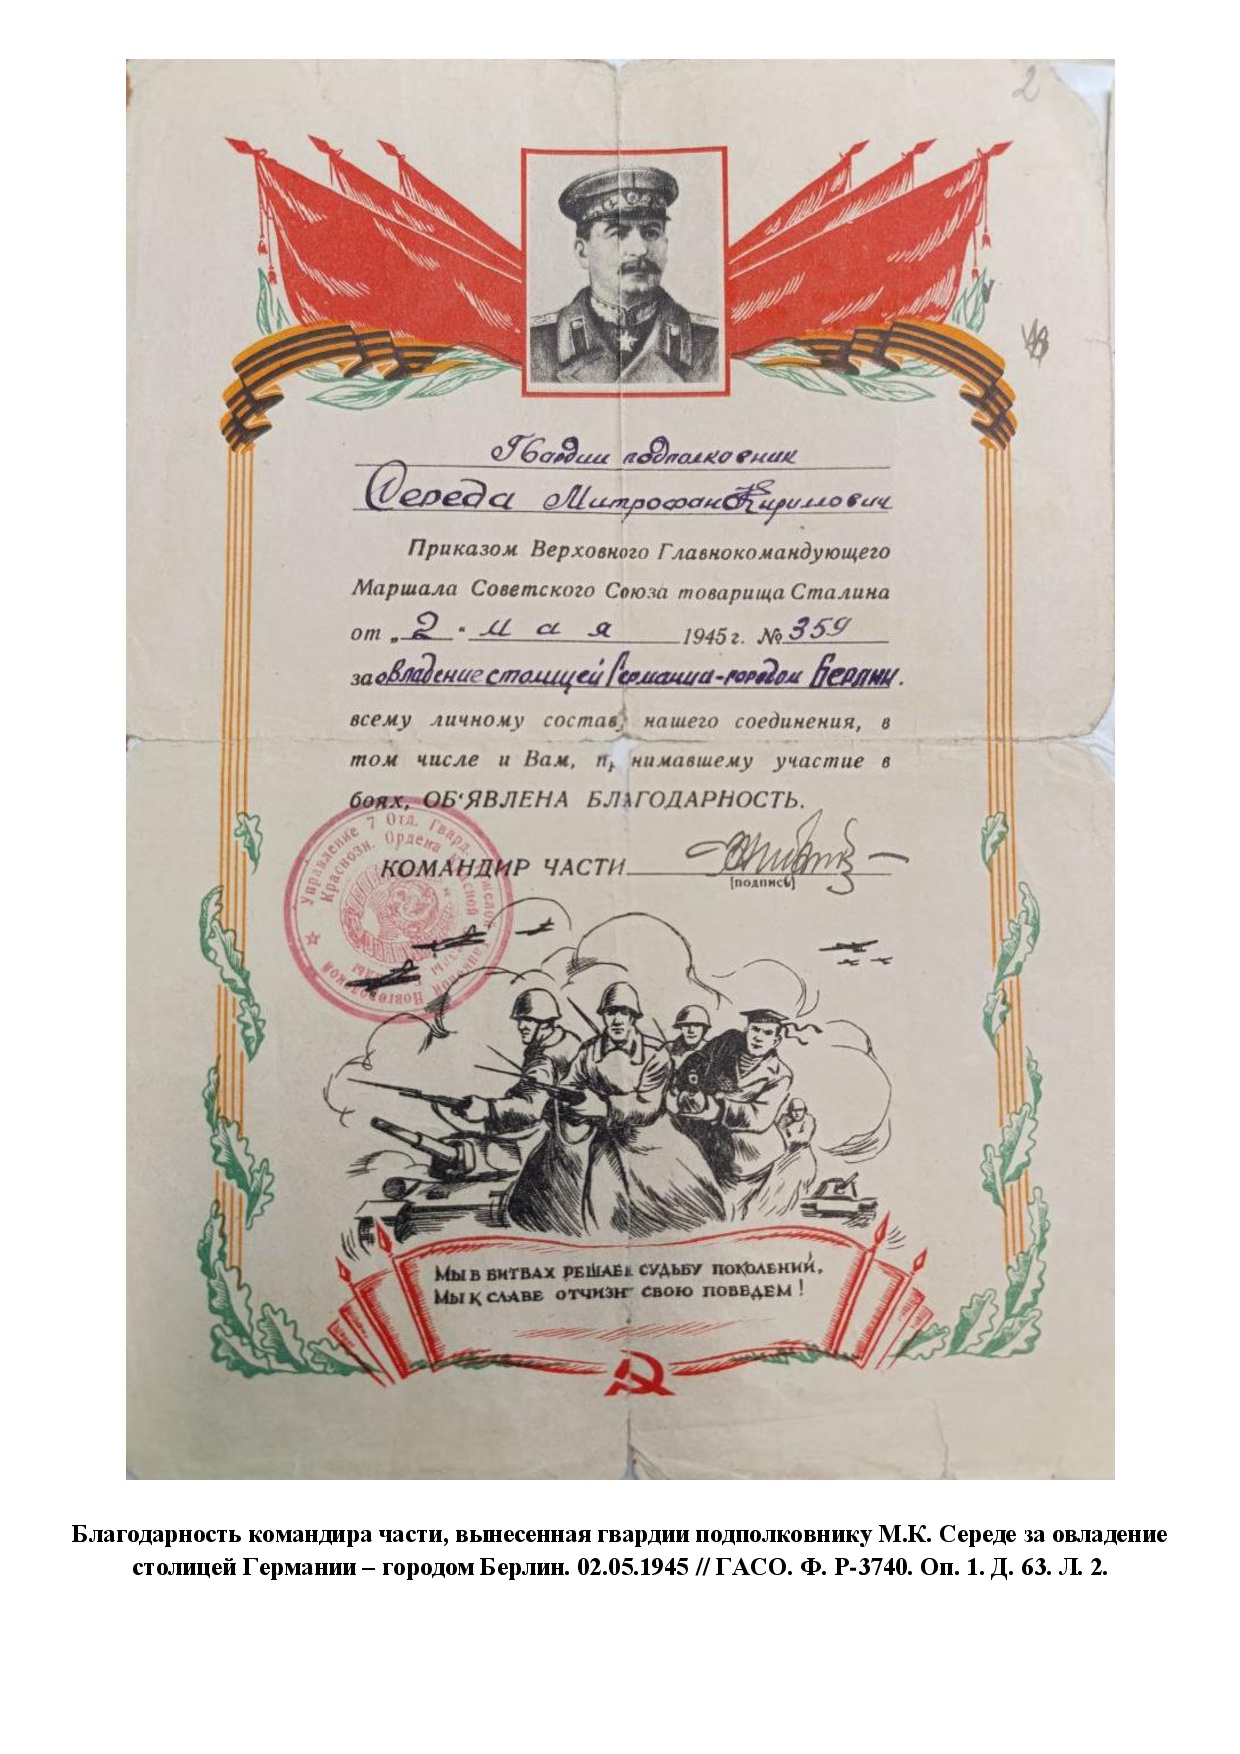 2
Гвардии подполковник
Середа Митрофан Кирилович
Приказом Верховного Главнокомандующего
Маршала Советского Союза товарища Сталина
от „2" мая 1945 г. № 359
за овладение столицей Германии-городом Берлин.
всему личному составу нашего соединения, в
том числе и Вам, принимавшему участие в
боях, ОБ'ЯВЛЕНА БЛАГОДАРНОСТЬ.
КОМАНДИР ЧАСТИ
(подпись)
Управление 7 Отд. Гвард. Тяжелой Танковой Новгородской
Краснозн. Ордена Красной
Мы в битвах решаем судьбу поколений,
Мы к славе отчизну свою поведем!
Благодарность командира части, вынесенная гвардии подполковнику М.К. Середе за овладение
столицей Германии – городом Берлин. 02.05.1945 // ГАСО. Ф. Р-3740. Оп. 1. Д. 63. Л. 2.